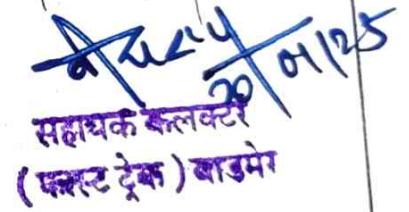 20/01/25
सहायक कलक्टर
(फास्ट ट्रेक) बाडमेर